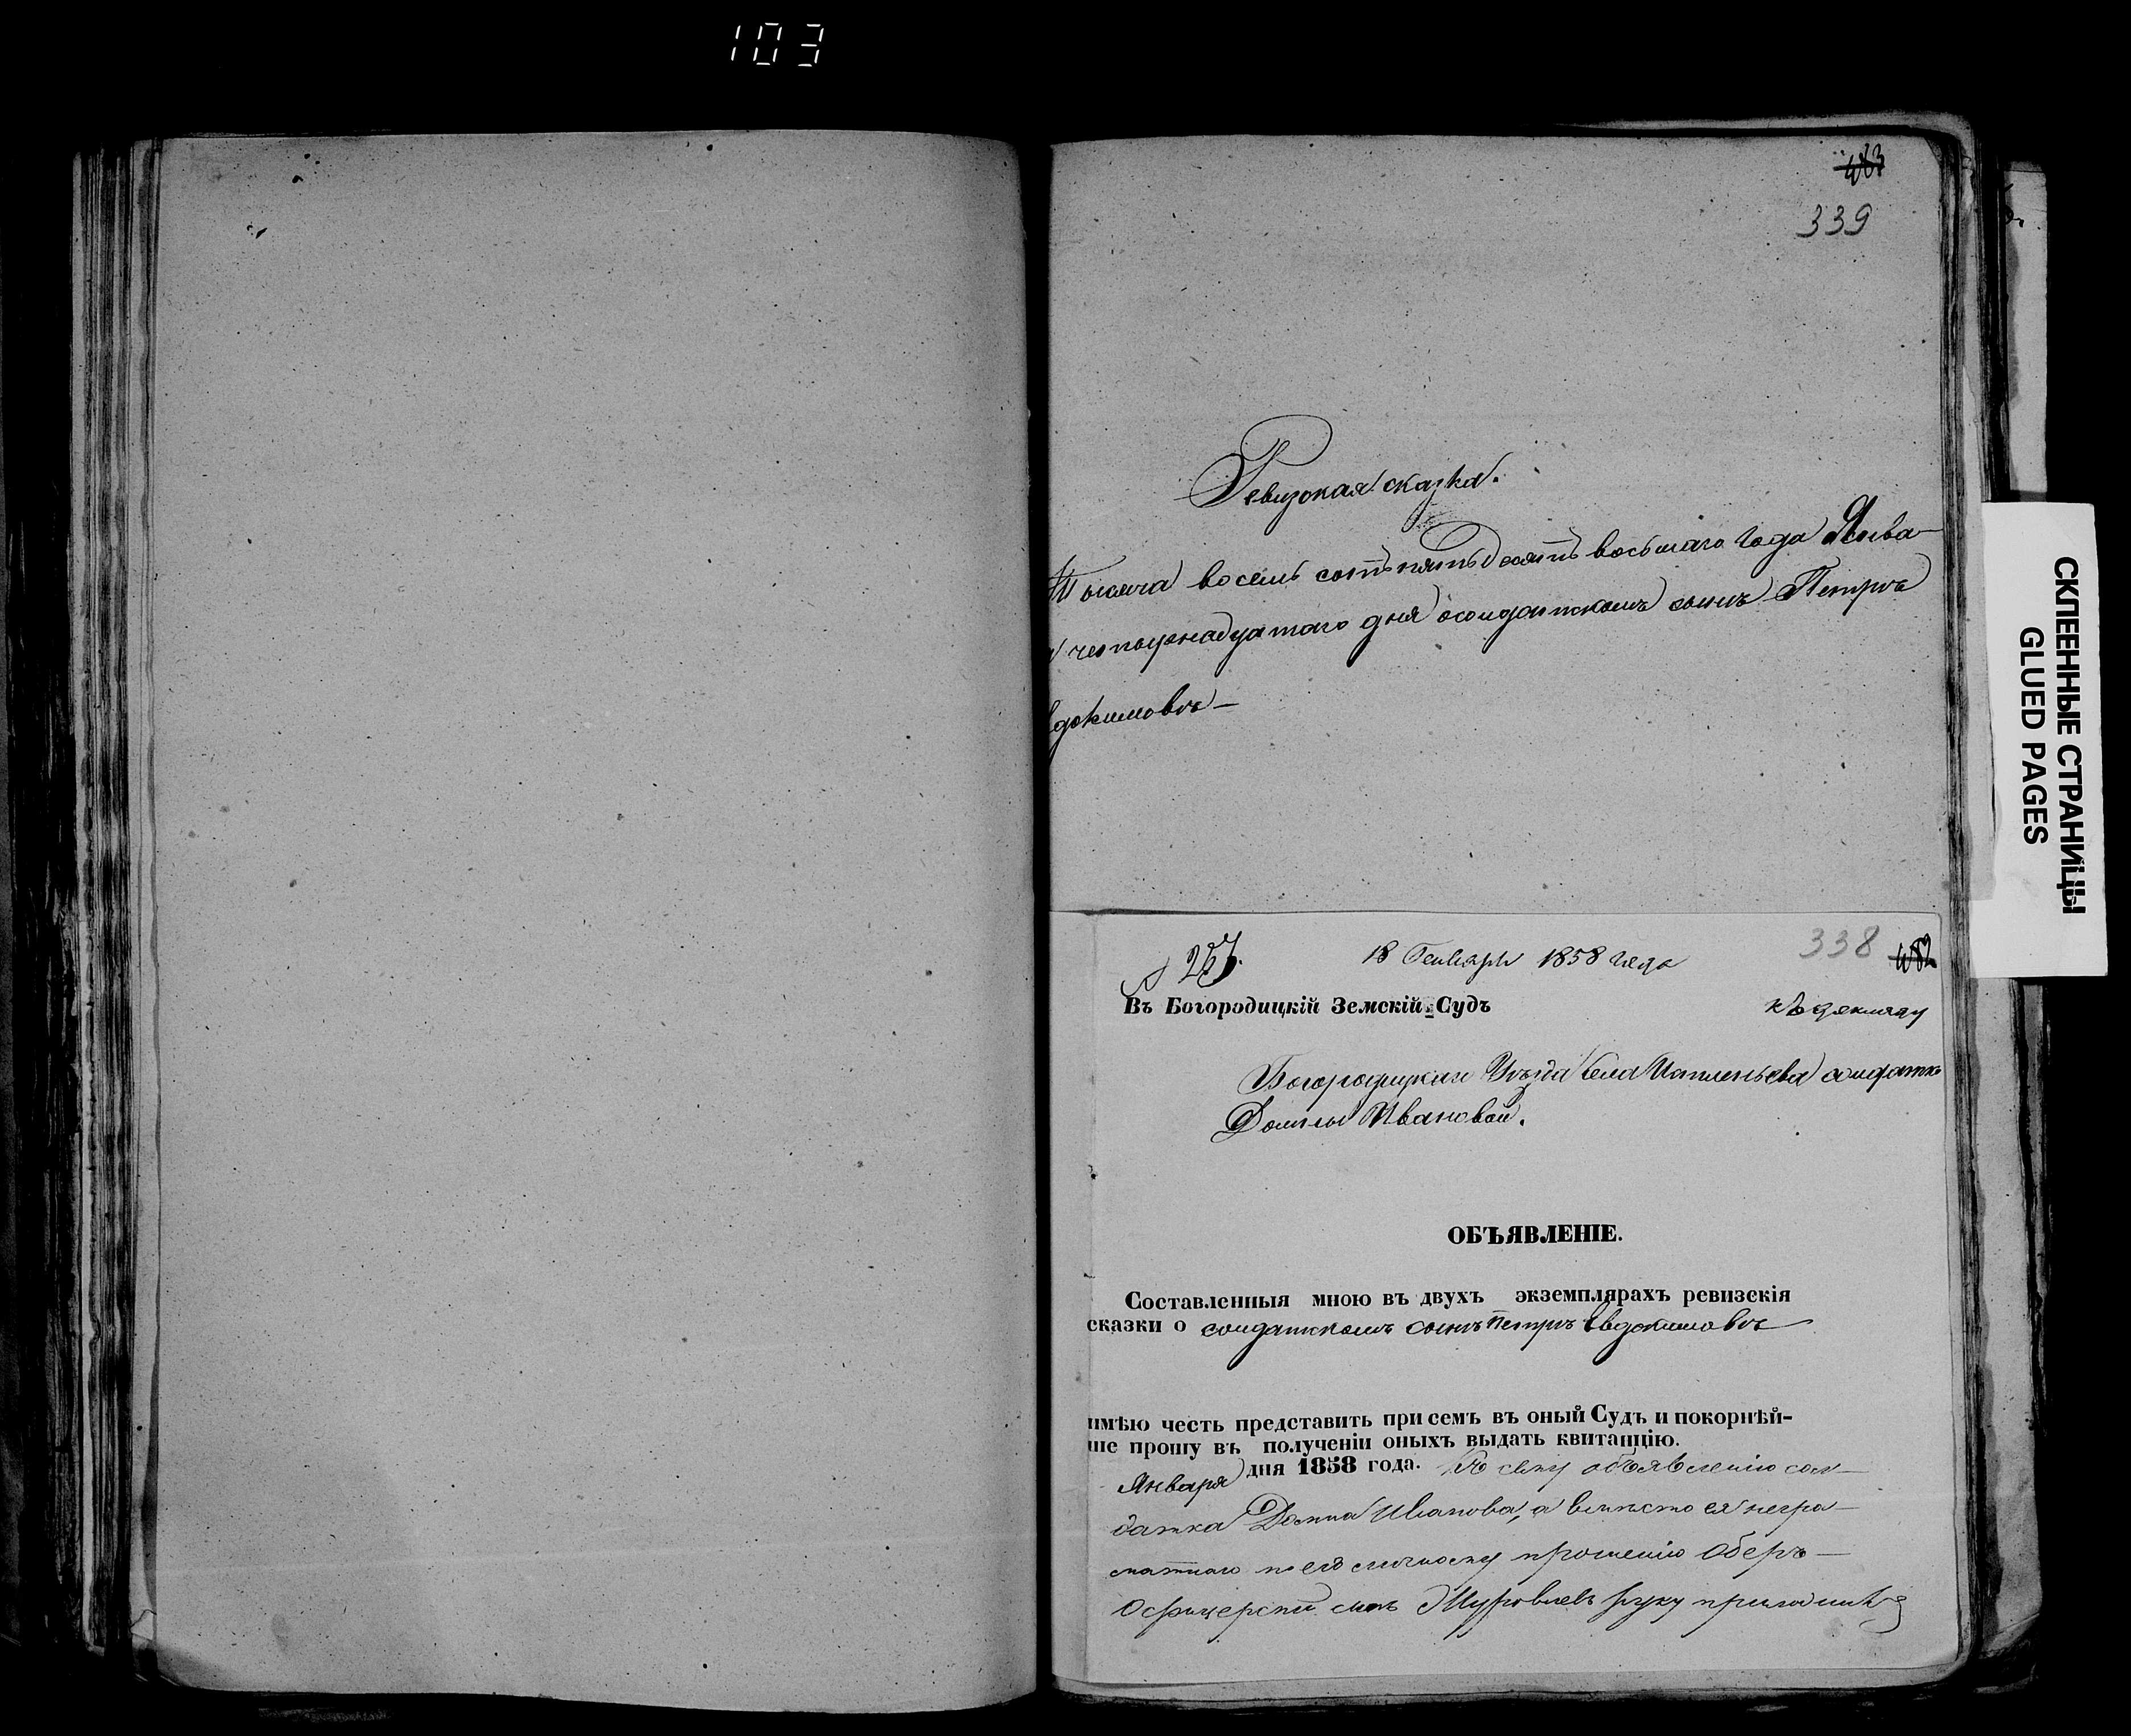 103
483
339
Ревизская сказка.
Тысяча восемь сотъ пятьдесятъ восьмаго года Янва-
четырнадцатаго дня о солдатскомъ сынѣ Петрѣ
вдокимовѣ—
СКЛЕЕННЫЕ СТРАНИЦЫ
GLUED PAGES
257. 18 Генваря 1858 года 338 482
Въ Богородицкій Земскій Судъ къ докладу
Богородицкаго Уѣзда села солдатк
Домны Ивановой.
ОБЪЯВЛЕНІЕ.
Составленныя мною въ двухъ экземплярахъ ревизскія
сказки о солдатскомъ сынѣ Петрѣ Евдокимовѣ
имѣю честь представить при семъ въ оный Судъ и покорнѣй-
ше прошу въ полученіи оныхъ выдать квитанцію.
Января дня 1858 года. Къ сему объявленію сол-
датка Домна Иванова, а вмѣсто ея негра-
матной по ея личному прошенію Оберъ-
Офицерскій сынъ Муравлевъ руку приложилъ